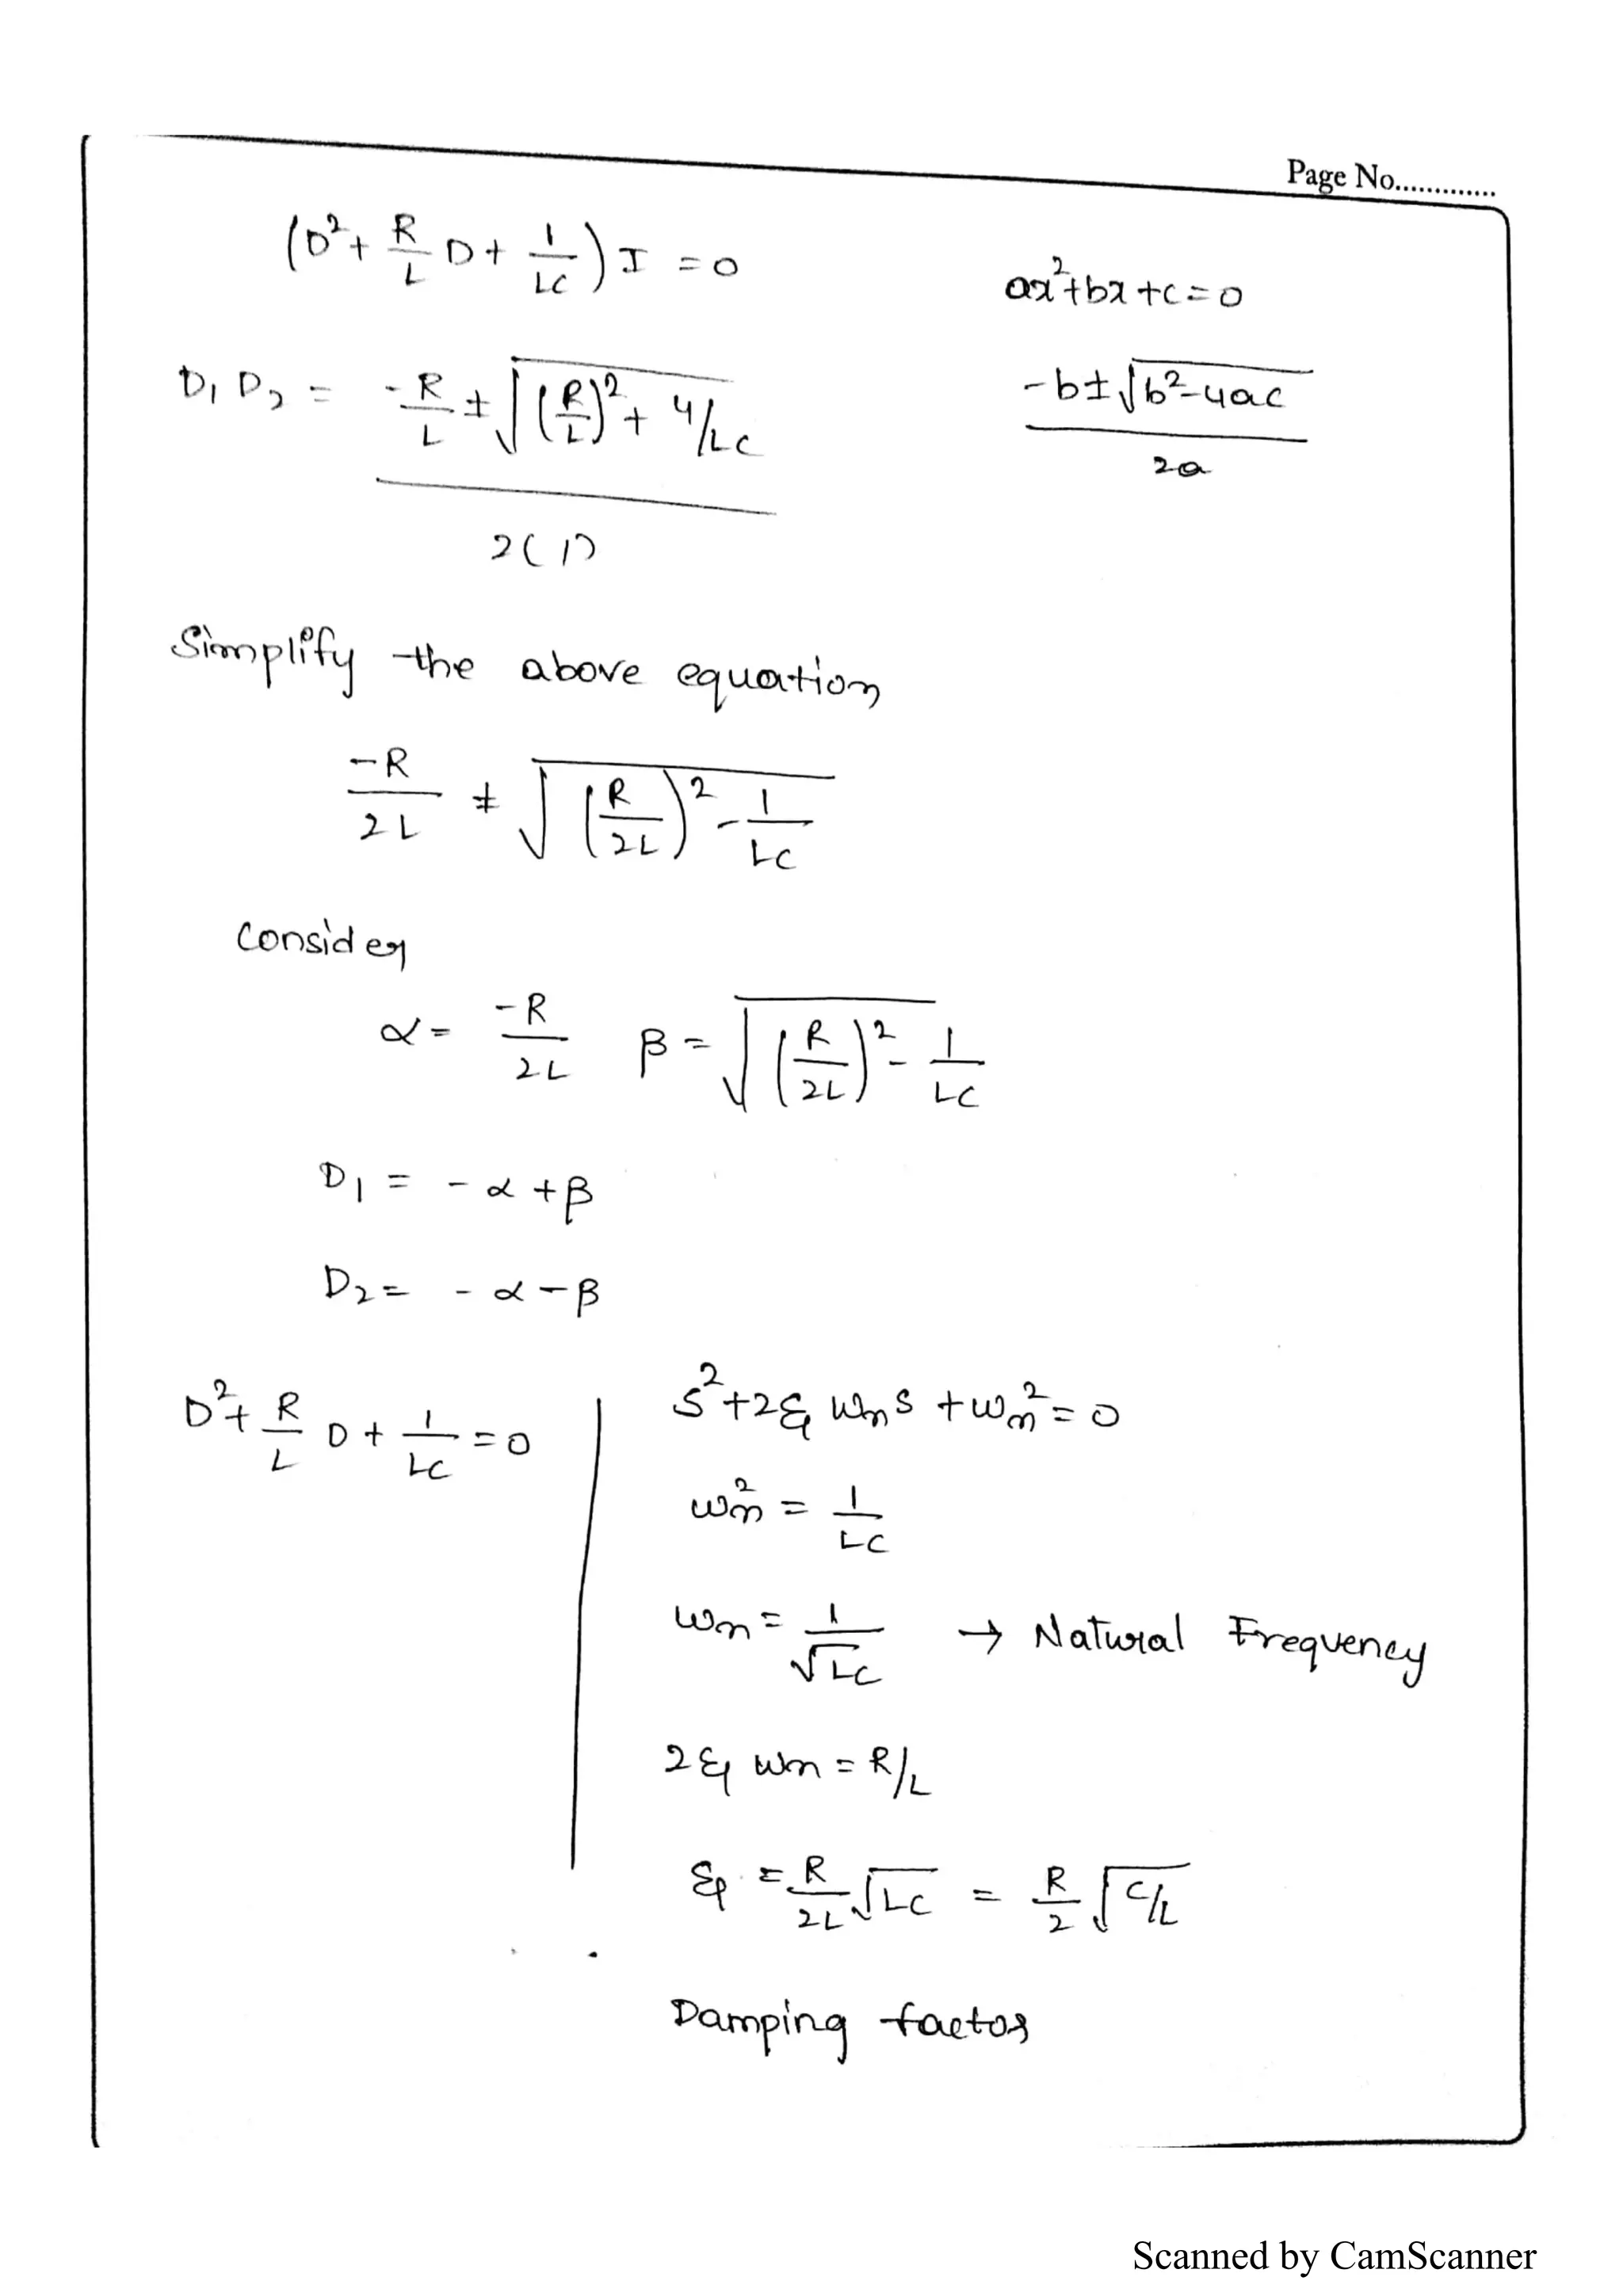 Page No.............
(D² + R/L D + 1/LC) I = 0
ax² + bx + c = 0
D₁ D₂ = (-R/L ± √((R/L)² + 4/LC)) / 2(1)
(-b ± √(b² - 4ac)) / 2a
Simplify the above equation
-R/2L ± √((R/2L)² - 1/LC)
Consider
α = -R/2L β = √((R/2L)² - 1/LC)
D₁ = - α + β
D₂ = - α - β
D² + R/L D + 1/LC = 0
S² + 2ξ ωn S + ωn² = 0
ωn² = 1/LC
ωn = 1/√LC → Natural Frequency
2ξ ωn = R/L
ξ = R/2L √LC = R/2 √C/L
Damping factor
Scanned by CamScanner